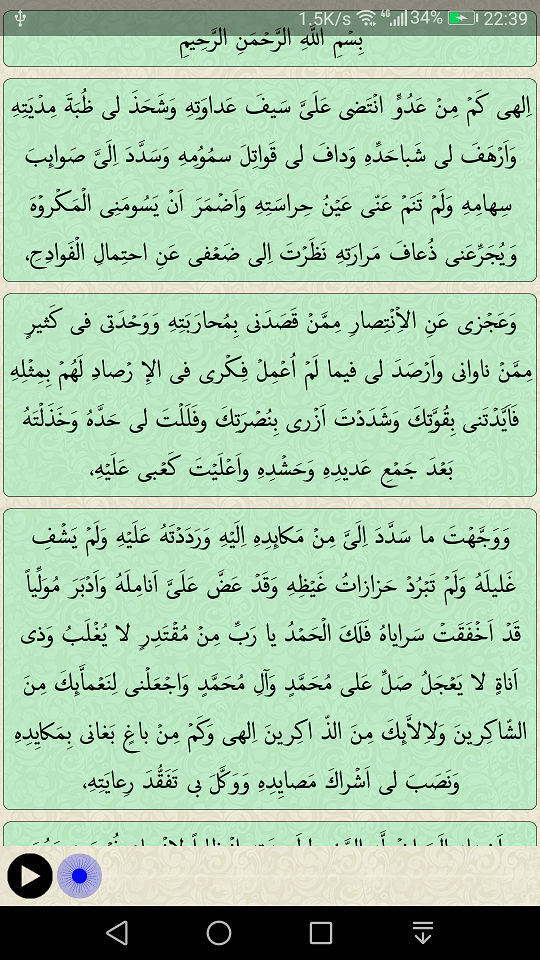 1.5K/s 4G 34% 22:39
بِسْمِ اللَّهِ الرَّحْمَنِ الرَّحِيمِ
اِلهى كَمْ مِنْ عَدُوٍّ انْتَضى عَلَىَّ سَيفَ عَداوَتِهِ وَشَحَذَ لى ظُبَةَ مِدْيَتِهِ
وَاَرْهَفَ لى شَباحَدِّهِ وَدافَ لى قَواتِلَ سمُوُمِهِ وَسَدَّدَ اِلَىَّ صَوايِبَ
سِهامِهِ وَلَمْ تَنَمْ عَنّى عَيْنُ حِراسَتِهِ وَاَضْمَرَ اَنْ يَسُومَنِى الْمَكْروُهَ
وَيُجَرِّعَنى ذُعافَ مَرارَتِهِ نَظَرْتَ اِلى ضَعْفى عَنِ احتِمالِ الْفَوادِحِ،
وَعَجْزى عَنِ الاِْنْتِصارِ مِمَّنْ قَصَدَنى بِمُحارَبَتِهِ وَوَحْدَتى فى كَثيرٍ
مِمَّنْ ناوانى واَرْصَدَ لى فيما لَمْ اُعْمِلْ فِكْرى فى الإِ رْصادِ لَهُمْ بِمِثْلِهِ
فَاَيَّدْتَنى بِقُوَّتِكَ وَشَدَدْتَ اَزْرى بِنُصْرَتِكَ وفَلَلْتَ لى حَدَّهُ وَخَذَلْتَهُ
بَعْدَ جَمْعِ عَديدِهِ وَحَشْدِهِ واَعْلَيْتَ كَعْبى عَلَيْهِ،
وَوَجَّهْتَ ما سَدَّدَ اِلَىَّ مِنْ مَكايِدِهِ اِلَيْهِ وَرَدَدْتَهُ عَلَيْهِ وَلَمْ يَشْفِ
غَليلَهُ وَلَمْ تَبْرُدْ حَزازاتُ غَيْظِهِ وَقَدْ عَضَّ عَلَىَّ اَنامِلَهُ وَاَدْبَرَ مُوَلِّياً
قَدْ اَخْفَقَتْ سَراياهُ فَلَكَ الْحَمْدُ يا رَبِّ مِنْ مُقْتَدِرٍ لا يُغْلَبُ وَذى
اَناةٍ لا يَعْجَلُ صَلِّ عَلى مُحَمَّدٍ وَآلِ مُحَمَّدٍ وَاجْعَلْنى لِنَعْمأَّئِكَ مِنَ
الشّاكِرينَ وَلاِلاَّئِكَ مِنَ الذّ اكِرينَ اِلهى وَكَمْ مِنْ باغٍ بَغانى بِمَكايِدِهِ
وَنَصَبَ لى اَشْراكَ مَصايِدِهِ وَوَكَّلَ بى تَفَقُّدَ رِعايَتِهِ،